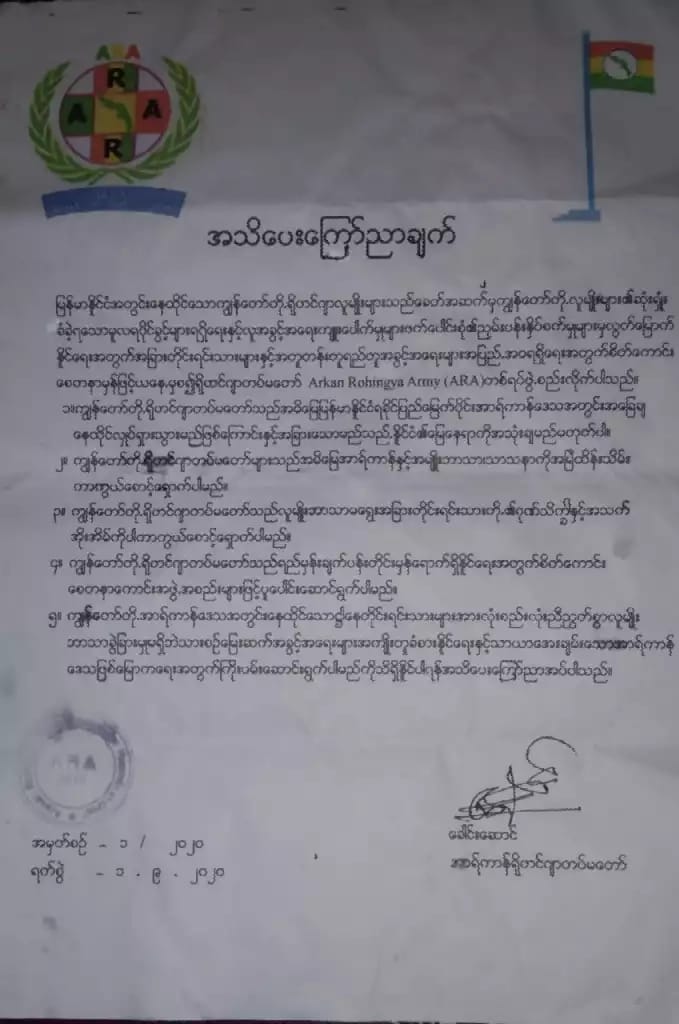 ARA
A R A R
အသိပေးကြော်ညာချက်
မြန်မာနိုင်ငံအတွင်းနေထိုင်သောကျွန်တော်တို့ရိုဟင်ဂျာလူမျိုးများသည်ခေတ်အဆက်မှကျွန်တော်တို့လူမျိုးများ၏ဆုံးရှုံး
ခံခဲ့ရသောမူလရပိုင်ခွင့်များရရှိရေးနှင့်လူ့အခွင့်အရေးကျူးပေါက်မှုများဖက်ပေါင်းစုံ၏ညှမ်းပန်းနှိပ်စက်မှုများမှလွတ်မြောက်
နိုင်ရေးအတွက်အခြားတိုင်းရင်းသားများနှင့်အတူတန်းတူရည်တူအခွင့်အရေးများအပြည့်အဝရရှိရေးအတွက်စိတ်ကောင်း
စေတနာမှန်ဖြင့်ယနေ့မှစ၍ရိုဟင်ဂျာတပ်မတော် Arkan Rohingya Army (ARA)တစ်ရပ်ဖွဲ့စည်းလိုက်ပါသည်။
၁။ကျွန်တော်တို့ရိုဟင်ဂျာတပ်မတော်သည်အမိမြေမြန်မာနိုင်ငံရခိုင်ပြည်မြောက်ပိုင်းအာရ်ကာန်ဒေသအတွင်းအခြေချ
နေထိုင်လှုပ်ရှားသွားမည်ဖြစ်ကြောင်းနှင့်အခြားသောမည်သည့်နိုင်ငံ၏မြေနေရာကိုအသုံးချမည်မဟုတ်ပါ။
၂။ ကျွန်တော်တို့ရိုဟင်ဂျာတပ်မတော်များသည်အမိမြေအာရ်ကာန်နှင့်အမျိုးဘာသာသာသနာကိုအမြဲထိန်းသိမ်း
ကာကွယ်စောင့်ရှောက်ပါမည်။
၃။ ကျွန်တော်တို့ရိုဟင်ဂျာတပ်မတော်သည်လူမျိုးဘာသာမရွေးအခြားတိုင်းရင်းသားတို့၏ဂုဏ်သိက္ခါနှင့်အသက်
အိုးအိမ်ကိုပါကာကွယ်စောင့်ရှောက်ပါမည်။
၄။ ကျွန်တော်တို့ရိုဟင်ဂျာတပ်မတော်သည်ရည်မှန်းချက်ပန်းတိုင်းမှန်ရောက်ရှိနိုင်ရေးအတွက်စိတ်ကောင်း
စေတနာကောင်းအဖွဲ့အစည်းများဖြင့်ပူပေါင်းဆောင်ရွက်ပါမည်။
၅။ ကျွန်တော်တို့အာရ်ကာန်ဒေသအတွင်းနေထိုင်သော၌နေတိုင်းရင်းသားများအားလုံးစည်းလုံးညီညွတ်စွာလူမျိုး
ဘာသာခွဲခြားမှုမရှိဘဲသားစဉ်မြေးဆက်အခွင့်အရေးများအကျိုးတူခံစားနိုင်ရေးနှင့်သာယာအေးချမ်းသောအာရ်ကာန်
ဒေသဖြစ်မြောကရေးအတွက်ကြိုးပမ်းဆောင်ရွက်ပါမည်ကိုသိရှိနိုင်ပါရန်အသိပေးကြော်ညာအပ်ပါသည်။
ARA
ခေါင်းဆောင်
အာရ်ကာန်ရိုဟင်ဂျာတပ်မတော်
အမှတ်စဉ် - ၁ / ၂၀၂၀
ရက်စွဲ - ၁ . ၉ . ၂၀၂၀